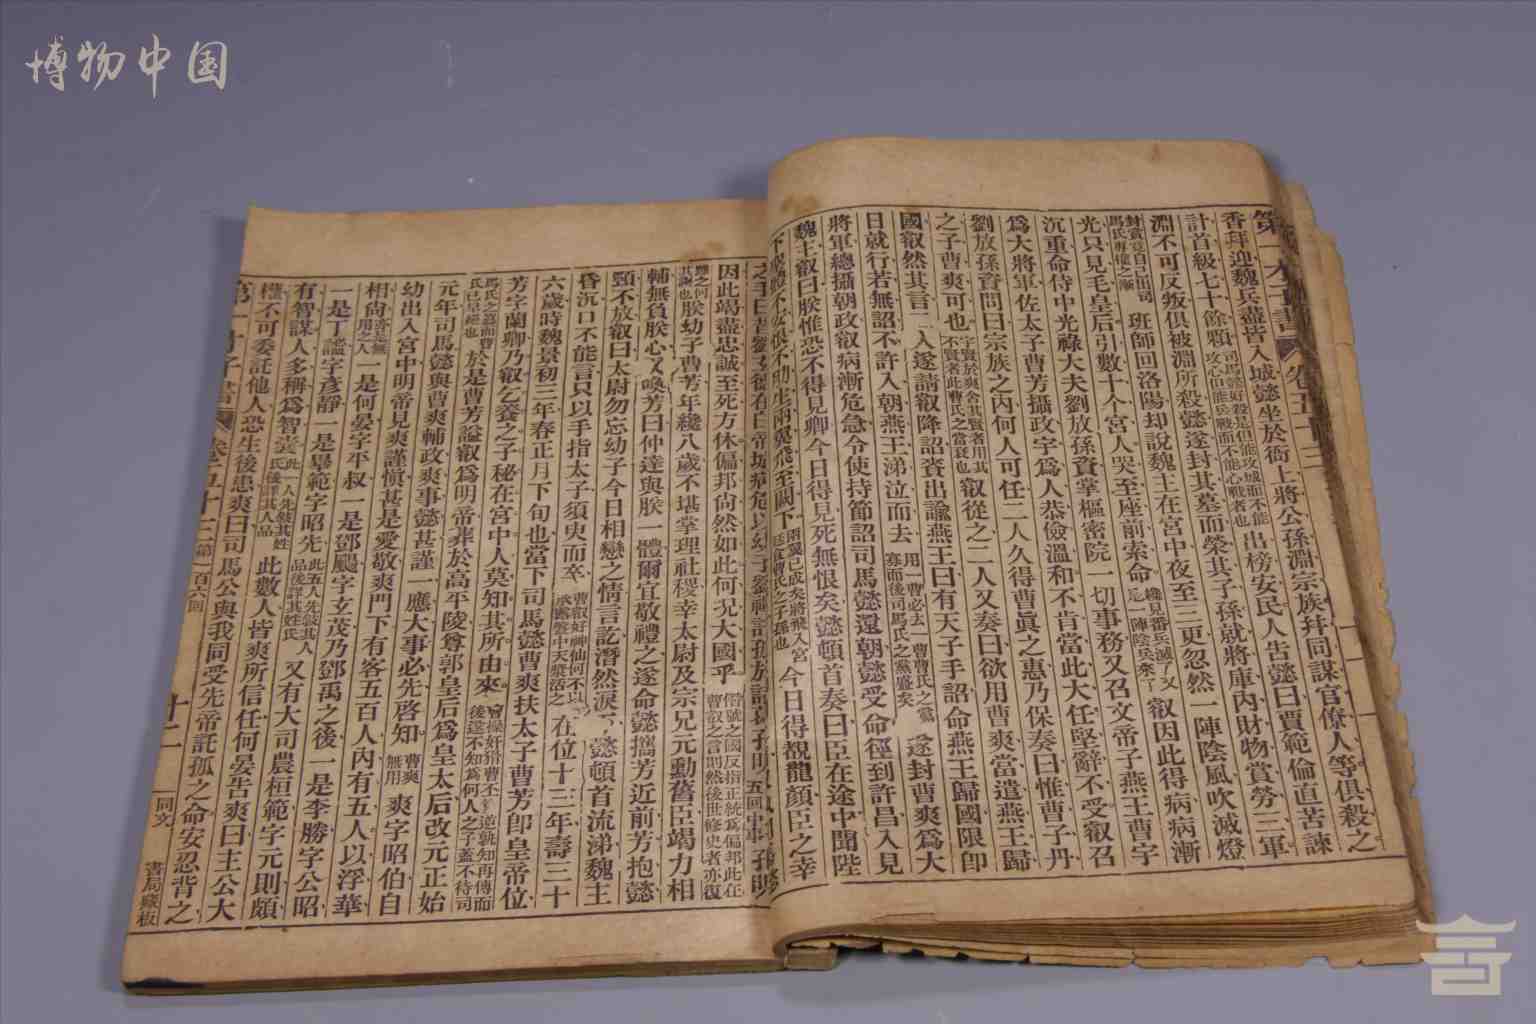 博物中国
香拜迎魏兵盡皆入城懿坐於衙上將公孫淵宗族并同謀官僚人等俱殺之
計首級七十餘顆司馬懿好殺是但能攻城而不能攻心但能兵戰而不能心戰者也出榜安民人告懿曰賈範倫直苦諫
淵不可反叛俱被淵所殺懿遂封其墓而榮其子孫就將庫內財物賞勞三軍
班師回洛陽却說魏主在宮中夜至三更忽然一陣陰風吹滅燈
光只見毛皇后引數十个宮人哭至座前索命纔見番兵滅了又是一陣陰兵來了叡因此得病病漸
沉重命侍中光祿大夫劉放孫資掌樞密院一切事務又召文帝子燕王曹宇
爲大將軍佐太子曹芳攝政宇爲人恭儉溫和不肯當此大任堅辭不受叡召
劉放孫資問曰宗族之內何人可任二人久得曹眞之惠乃保奏曰惟曹子丹
之子曹爽可也叡從之二人又奏曰欲用曹爽當遣燕王歸
國叡然其言二人遂請叡降詔賫出諭燕王曰有天子手詔命燕王歸國限卽
日就行若無詔不許入朝燕王涕泣而去遂封曹爽爲大
將軍總攝朝政叡病漸危急令使持節詔司馬懿還朝懿受命徑到許昌入見
魏主叡曰朕惟恐不得見卿今日得見死無恨矣懿頓首奏曰臣在途中聞陛
下聖體不安恨不肋生兩翼飛至闕下今日得覩龍顏臣之幸
因此竭盡忠誠至死方休偏邦尙然如此何况大國乎
朕幼子曹芳年纔八歲不堪掌理社稷幸太尉及宗兄元勳舊臣竭力相
輔無負朕心又喚芳曰仲達與朕一體爾宜敬禮之遂命懿攜芳近前芳抱懿
頸不放叡曰太尉勿忘幼子今日相戀之情言訖潸然淚下懿頓首流涕魏主
昏沉口不能言只以手指太子須臾而卒在位十三年壽三十
六歲時魏景初三年春正月下旬也當下司馬懿曹爽扶太子曹芳卽皇帝位
芳字蘭卿乃叡乞養之子秘在宮中人莫知其所由來
於是曹芳謚叡爲明帝葬於高平陵尊郭皇后爲皇太后改元正始
元年司馬懿與曹爽輔政爽事懿甚謹一應大事必先啓知爽字昭伯自
幼出入宮中明帝見爽謹愼甚是愛敬爽門下有客五百人內有五人以浮華
相尙一是何晏字平叔一是鄧颺字玄茂乃鄧禹之後一是李勝字公昭
一是丁謐字彥靜一是畢範字昭先又有大司農桓範字元則頗
有智謀人多稱爲智囊此數人皆爽所信任何晏告爽曰主公大
權不可委託他人恐生後患爽曰司馬公與我同受先帝託孤之命安忍背之
第一百六回
十二
同文
書局藏板